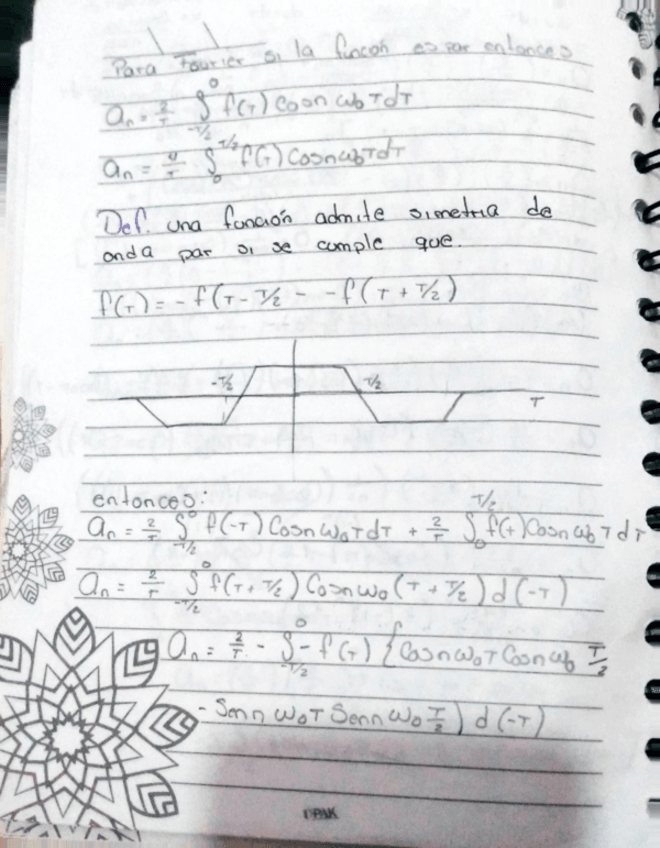 Para Fourier si la funcón es par entonces
aₙ = 2/T ∫_{-T/2}^{0} f(τ) Cosn ω₀ τ dτ
aₙ = 4/T ∫_{0}^{T/2} f(τ) Cosnω₀τdτ
Def. una función admite simetria de
onda par si se cumple que.
f(τ) = - f(τ - T/2 - - f(τ + T/2)
-T/2 T/2
τ
entonces:
aₙ = 2/T ∫_{-T/2}^{0} f(-τ) Cosnω₀τdτ + 2/T ∫_{0}^{T/2} f(τ) Cosn ω₀ τ dτ
aₙ = 2/T ∫_{-T/2}^{0} f(τ + T/2) Cosnω₀ (τ + T/2) d(-τ)
aₙ = 2/T - ∫_{-T/2}^{0} - f(τ) { Cosnω₀τ Cosnω₀ T/2
- Senn ω₀τ Senn ω₀ T/2 ) d(-τ)